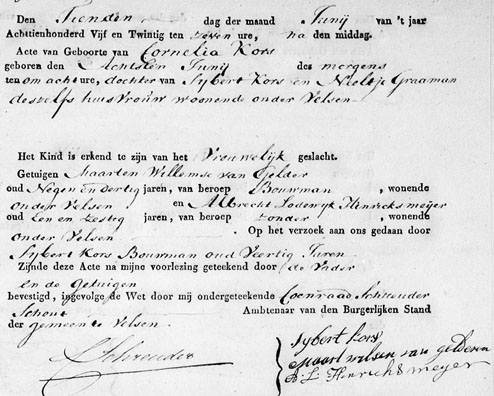 Den Tienden dag der maand Junij van 't jaar
Achttienhonderd Vijf en Twintig ten zeven ure, na den middag.
Acte van Geboorte van Cornelia Kors
geboren den Achtsten Junij des morgens
ten om acht ure, dochter van Sybert Kors en Neeltje Graaman
deszelfs huisvrouw woonende onder Velsen
Het Kind is erkend te zijn van het Vrouwelijk geslacht.
Getuigen Maarten Willemse van Gelder
oud Negen en dertig jaren, van beroep Bouwman, wonende
onder Velsen en Albrecht Lodewyk Hinrichsmeyer
oud Een en Zestig jaren, van beroep zonder, wonende
onder Velsen. Op het verzoek aan ons gedaan door
Sybert Kors Bouwman oud Veertig Jaren
Zijnde deze Acte na mijne voorlezing geteekend door de Vader
en de Getuigen
bevestigd, ingevolge de Wet door mij ondergeteekende Coenraad Schreuder
Schout Ambtenaar van den Burgerlijken Stand
der gemeente Velsen.
Schreuder
Sybert Kors
Maart wilsen van gelderen
A: L: Henrichsmeyer